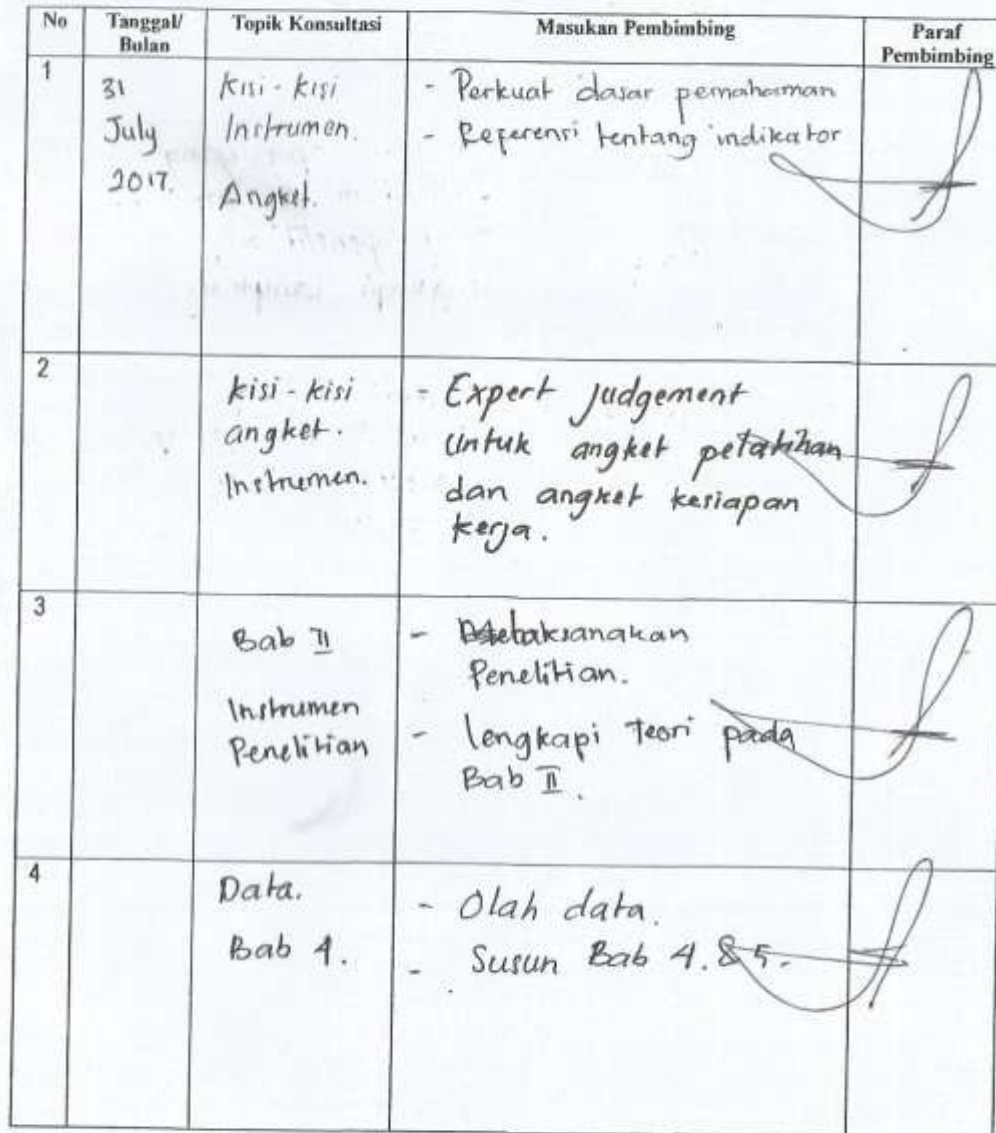 No Tanggal/ Bulan Topik Konsultasi Masukan Pembimbing Paraf Pembimbing
1
31 July 2017.
Kisi - kisi
Instrumen.
Angket.
- Perkuat dasar pemahaman
- Referensi tentang indikator
2
kisi - kisi
angket.
Instrumen.
- Expert Judgement
untuk angket pelatihan
dan angket kesiapan
kerja.
3
Bab II
Instrumen
Penelitian
-
Penelitian.
- lengkapi Teori pada
Bab II.
4
Data.
Bab 4.
- Olah data.
- Susun Bab 4. & 5.